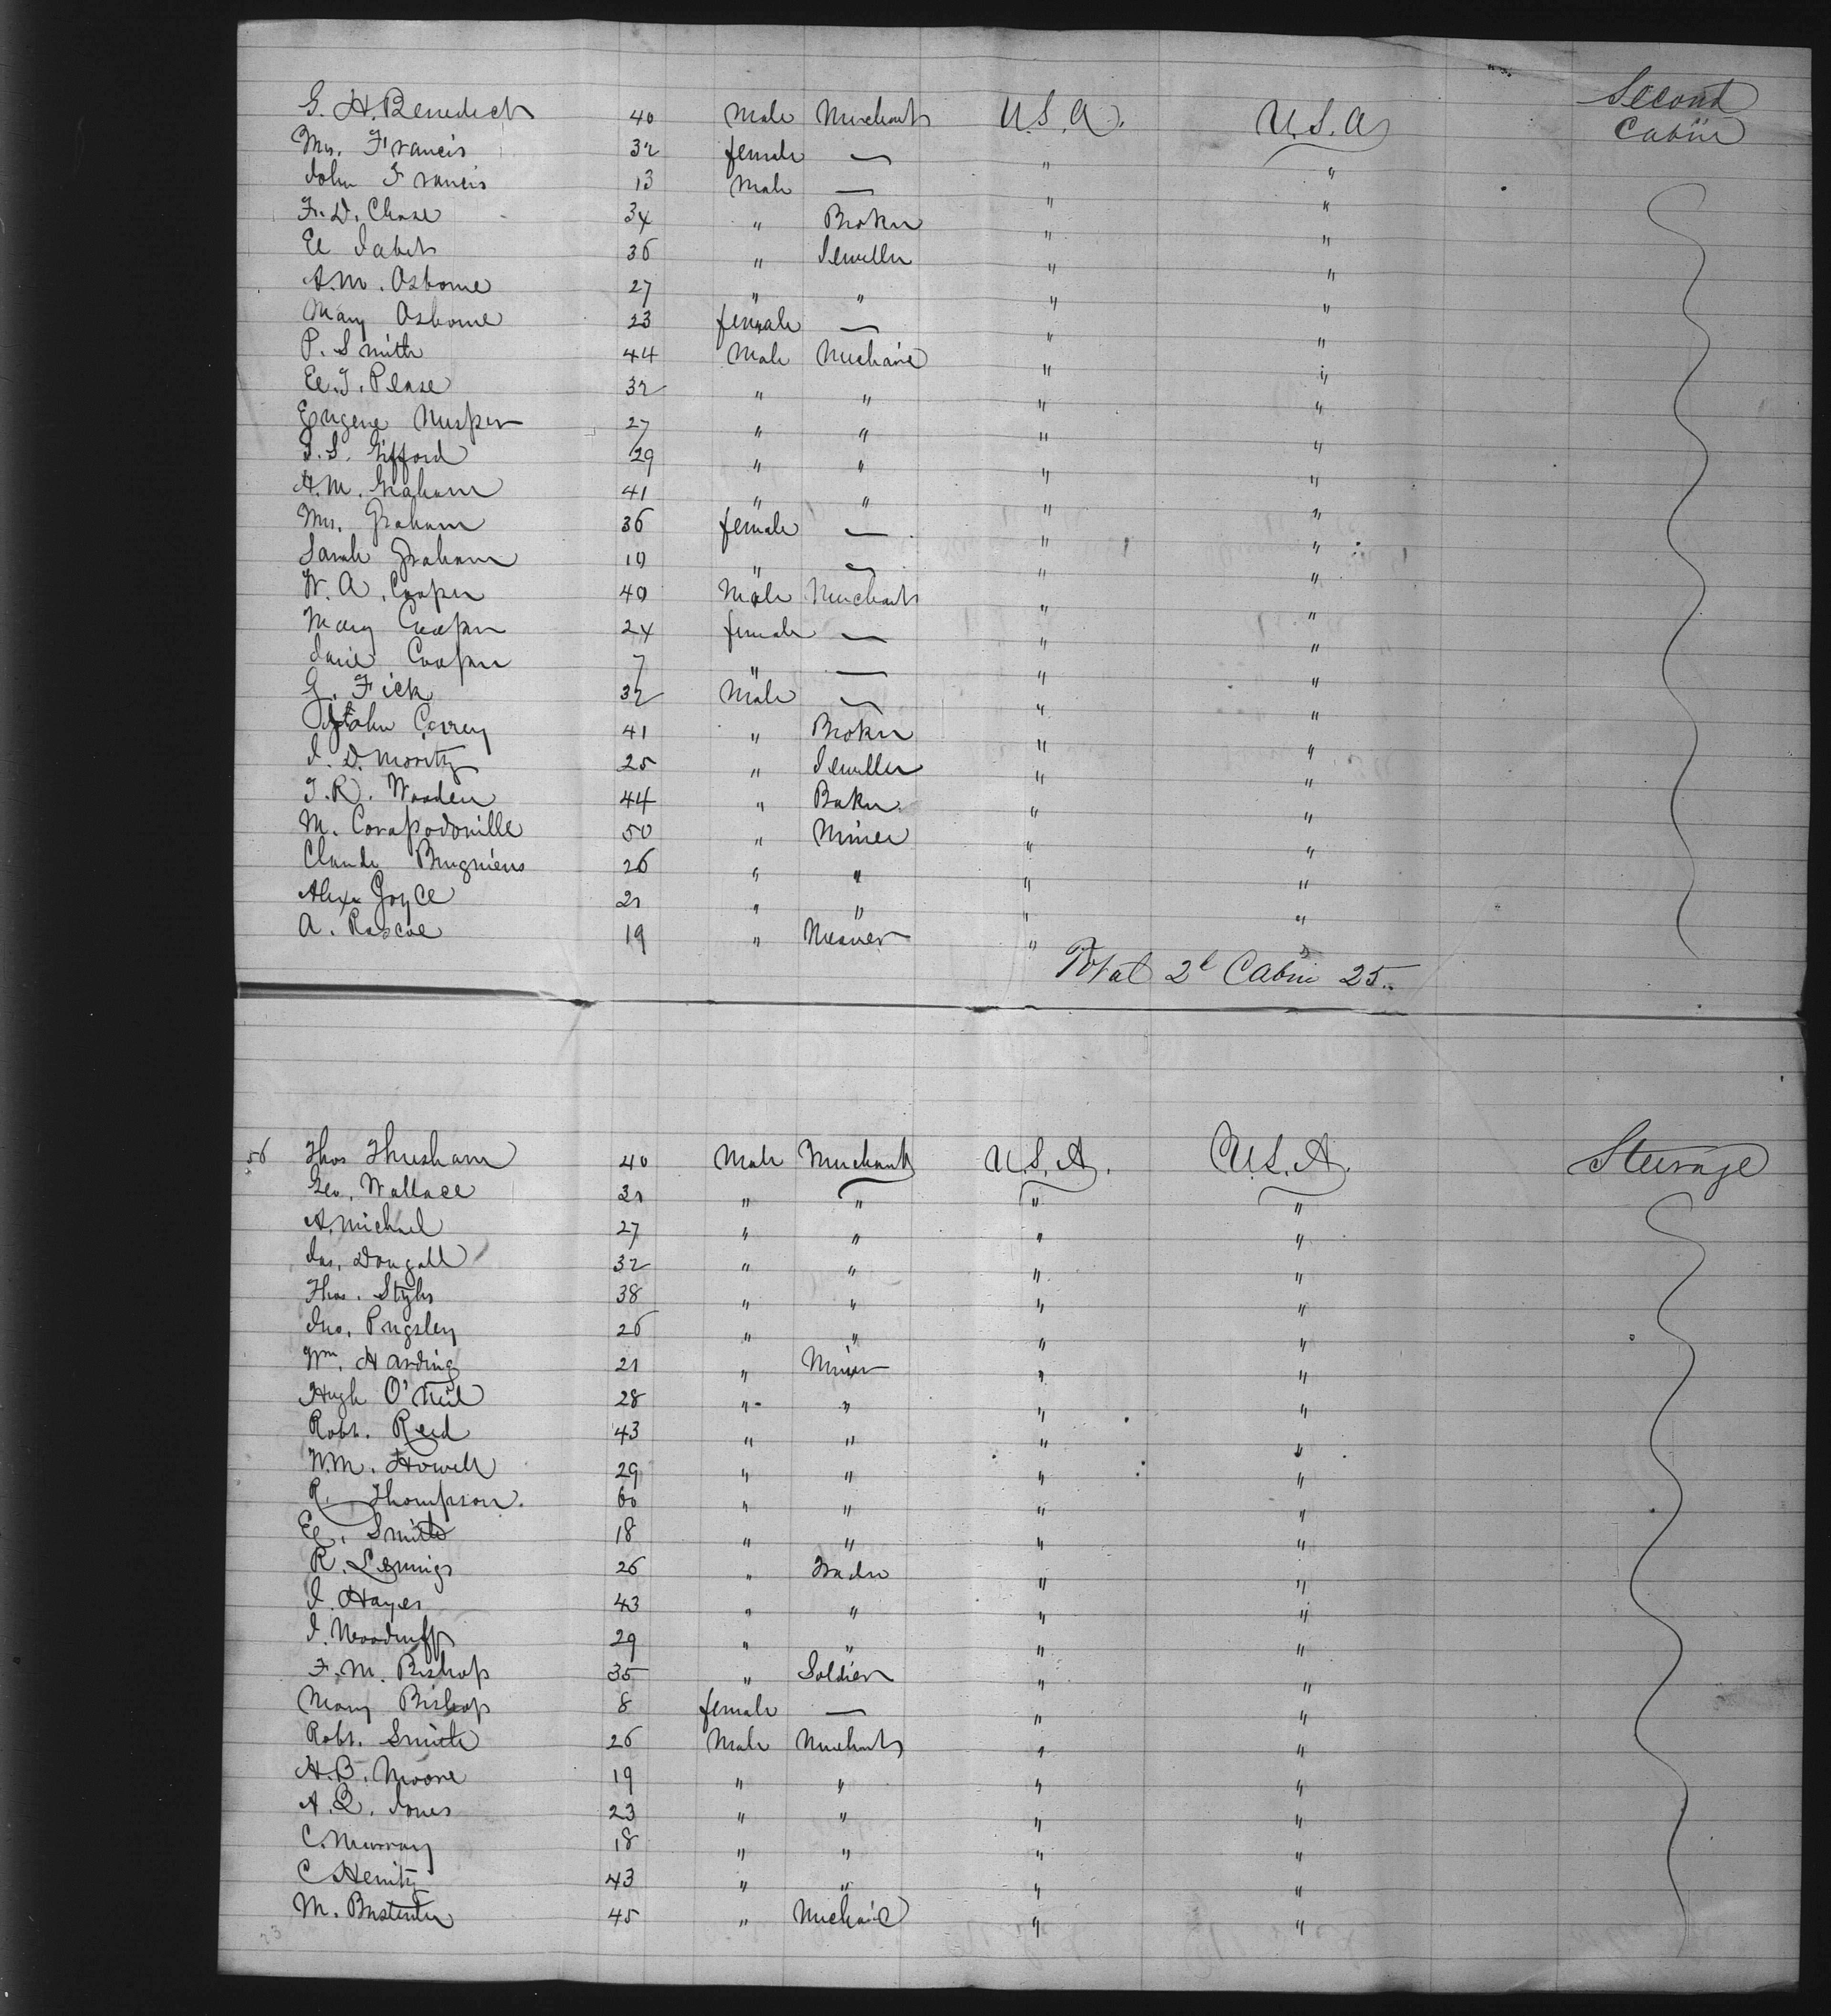 G. H. Benedict 40 Male Merchant U.S.A. U.S.A Second Cabin
Mrs. Francis 32 female — " "
John Francis 13 Male — " "
F. D. Chase 34 " Broker " "
36 " Jeweller " "
A. M. Osborne 27 " " " "
Mary Osborne 23 female — " "
P. Smith 44 Male Mechanic " "
E. J. Pease 32 " " " "
Eugene 27 " " " "
J. S. Gifford 29 " " " "
A. M. Graham 41 " " " "
Mrs. Graham 36 female — " "
Sarah Graham 10 " — " "
W. A. Cooper 40 Male Merchant " "
Mary Cooper 24 female — " "
Cooper 7 " — " "
G. Fick 32 Male — " "
John Correy 41 " Broker " "
J. D. Moritz 25 " Jeweller " "
J. R. Wooden 44 " Baker " "
M. 50 " Miner " "
Claude 26 " " " "
Alexr Joyce 21 " " " "
A. Roscoe 19 " Weaver "
Total 2d Cabin 25
56 Thos Thresham 40 Male Merchant U.S.A. U.S.A. Steerage
Geo. Wallace 31 " " " "
A. Michael 27 " " " "
Jas. Dougall 32 " " " "
Thos. Styles 38 " " " "
Jno. Pugsley 26 " " " "
Wm. Harding 21 " Miner " "
Hugh O'Neil 28 " " " "
Robt. Reid 43 " " " "
W.M. Howell 29 " " " "
R. Thompson. 60 " " " "
E. Smith 18 " " " "
R. 26 " Trader " "
J. Hayes 43 " " " "
J. Woodruff 29 " " " "
F. M. Bishop 35 " Soldier " "
Mary Bishop 8 female — " "
Robt. Smith 26 Male Merchant " "
H. B. Moore 19 " " " "
A. Q. Jones 23 " " " "
C. Murray 18 " " " "
C 43 " " " "
M. 45 " Mechanic " "
23